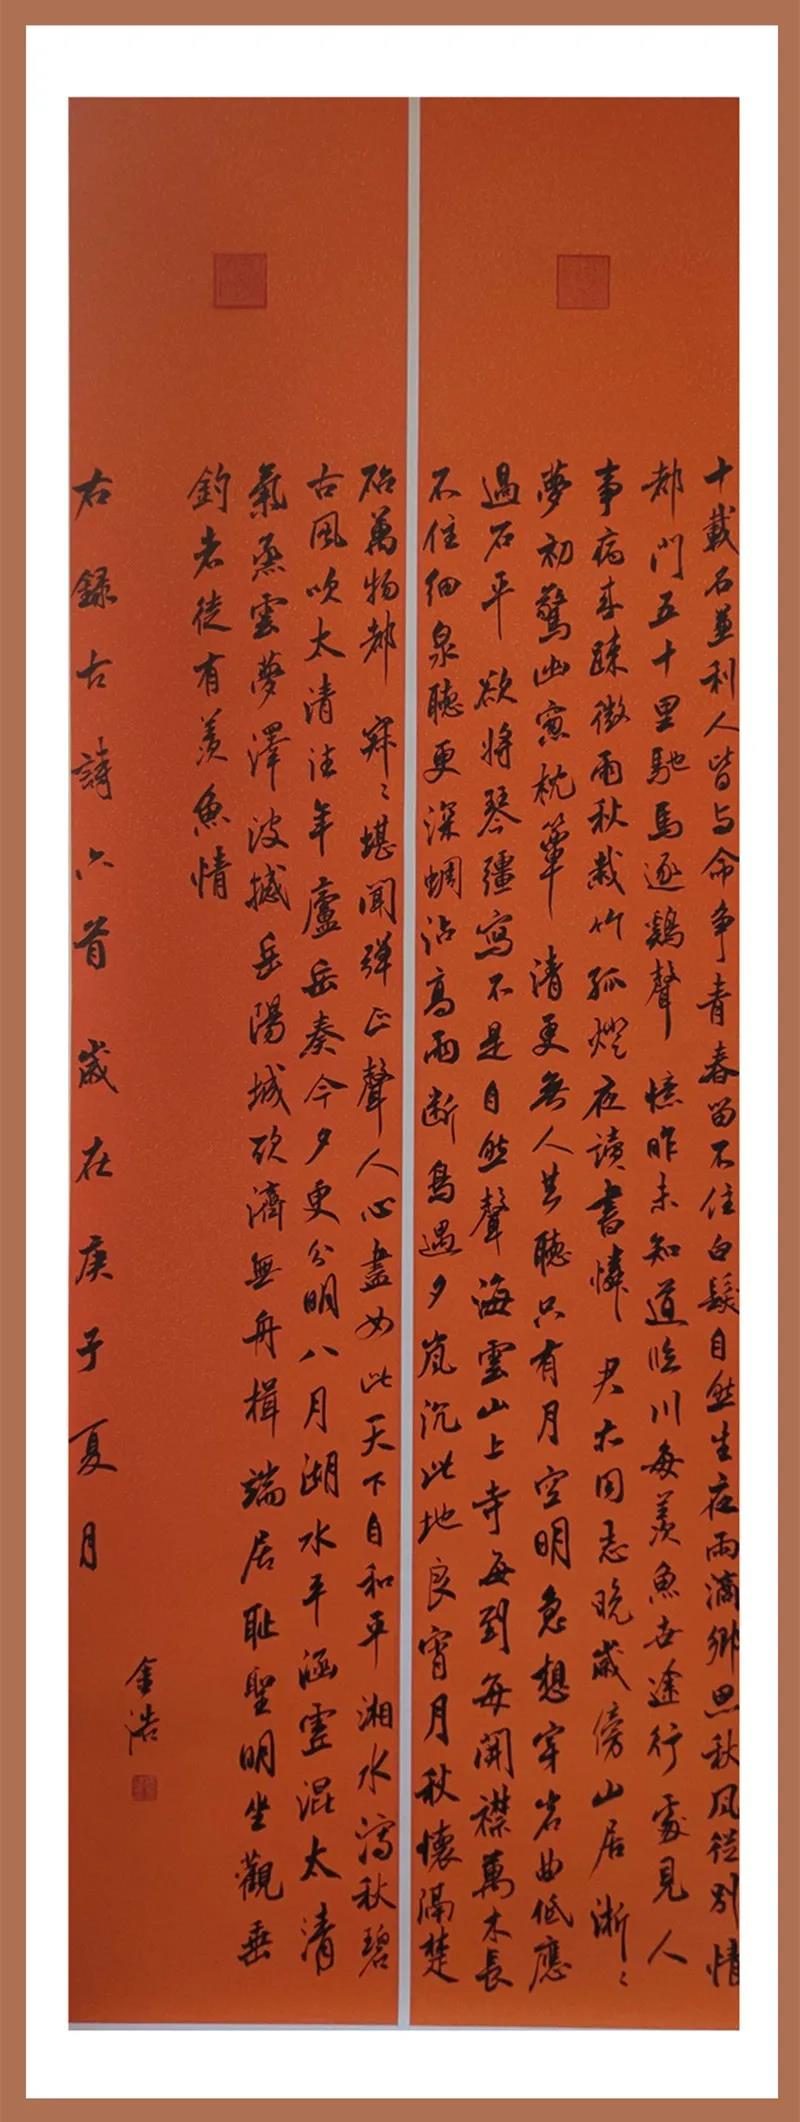 十載名兼利人皆与命争青春留不住白髮自然生夜雨滴鄉思秋風從別情
都門五十里馳馬逐鷄聲憶昨未知道臨川每羨魚世途行處見人
事病来踈微雨秋栽竹孤燈夜讀書憐君亦同志晚歲傍山居淅〻
夢初驚幽窓枕簟清更無人共聽只有月空明急想穿岩曲低應
過石平欲將琴彊寫不是自然聲海雲山上寺每到每開襟萬木長
不住細泉聽更深蜩沾高雨斷鳥遇夕嵐沉此地良宵月秋懷隔楚
砧萬物都寂〻堪聞彈正聲人心盡如此天下自和平湘水瀉秋碧
古風吹太清往年廬岳奏今夕更分明八月湖水平涵虛混太清
氣蒸雲夢澤波撼岳陽城欲濟無舟楫端居耻聖明坐觀垂
釣者徒有羨魚情
右錄古詩六首歲在庚子夏月
金浩